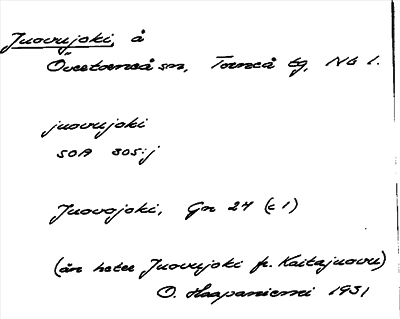 Juovujoki, å
Övertorneå sn, Torneå tg, Nb l.
juovujoki
SOA 305:j
Juovojoki, Gn 24 (c 1)
(ån heter Juovujoki fr. Kaitajuovu)
O. Haapaniemi 1931